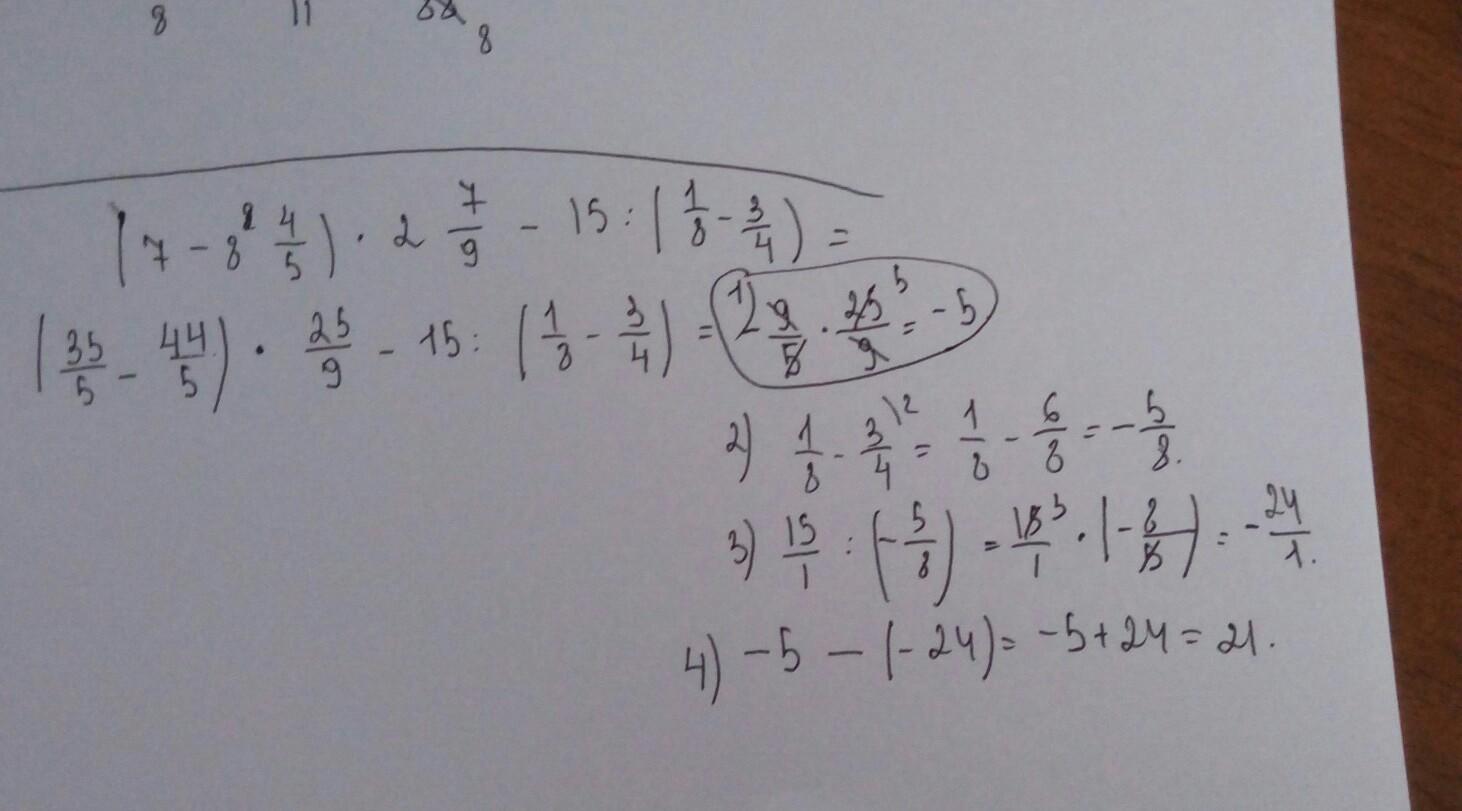 8 11 8
(7 - 8 4/5) · 2 7/9 - 15 : (1/8 - 3/4) =
(35/5 - 44/5) · 25/9 - 15 : (1/8 - 3/4) = 1) - 9/5 · 25/9 5 = -5
2) 1/8 - 3/4 \2 = 1/8 - 6/8 = - 5/8.
3) 15/1 : (- 5/8) = 15/1 3 · (- 8/5) = - 24/1.
4) -5 - (-24) = -5 + 24 = 21.